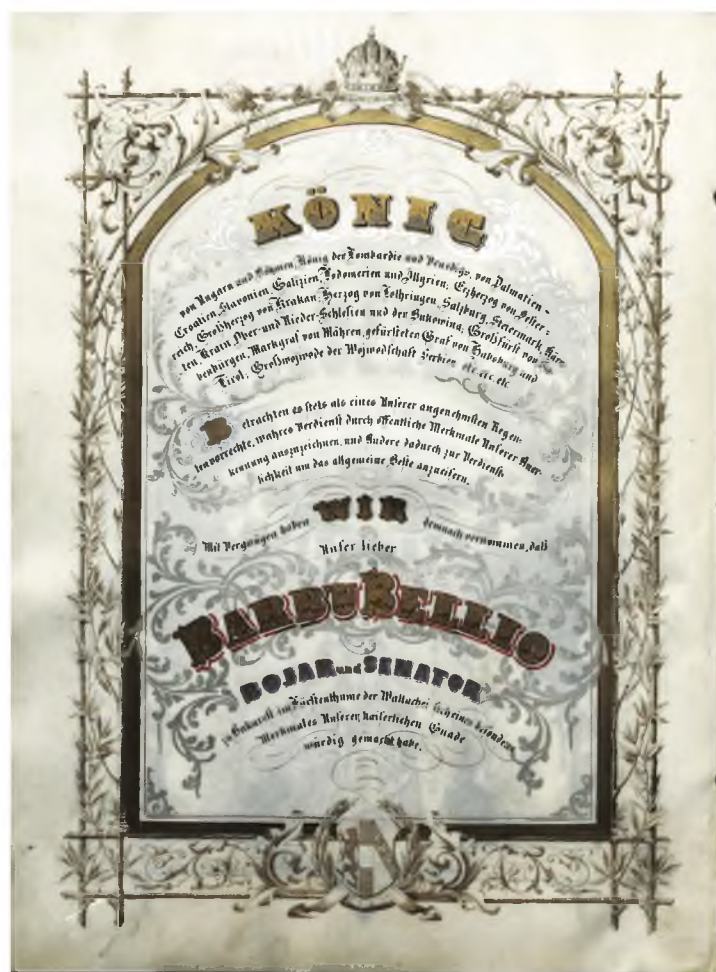 KÖNIG
von Ungarn und Böhmen, König der Lombardie und Venedigs, von Dalmatien-
Croatien, Slavonien, Galizien, Lodomerien und Illyrien, Erzherzog von Oester-
reich, Großherzog von Krakau, Herzog von Lothringen, Salzburg, Steiermark, Kär-
ten, Krain, Ober-und Nieder-Schlesien und der Bukowina, Großfürst von Sie-
benbürgen, Markgraf von Mähren, gefürsteten Graf von Habsburg und
Tirol, Großwojwode der Wojwodschaft Serbien, etc. etc. etc.
Betrachten es stets als eines Unserer angenehmsten Regen-
tenvorrechte, wahres Verdienst durch öffentliche Merkmale Unserer Aner-
kennung auszuzeichnen, und Andere dadurch zur Verdienst-
lichkeit um das allgemeine Beste anzueifern.
Mit Vergnügen haben WIR demnach vernommen, daß
Unser lieber
BARBU BELLIO
BOJAR und SENATOR
zu Bukarest im Fürstenthume der Wallachei sich eines besonderen
Merkmales Unserer kaiserlichen Gnade
würdig gemacht habe.